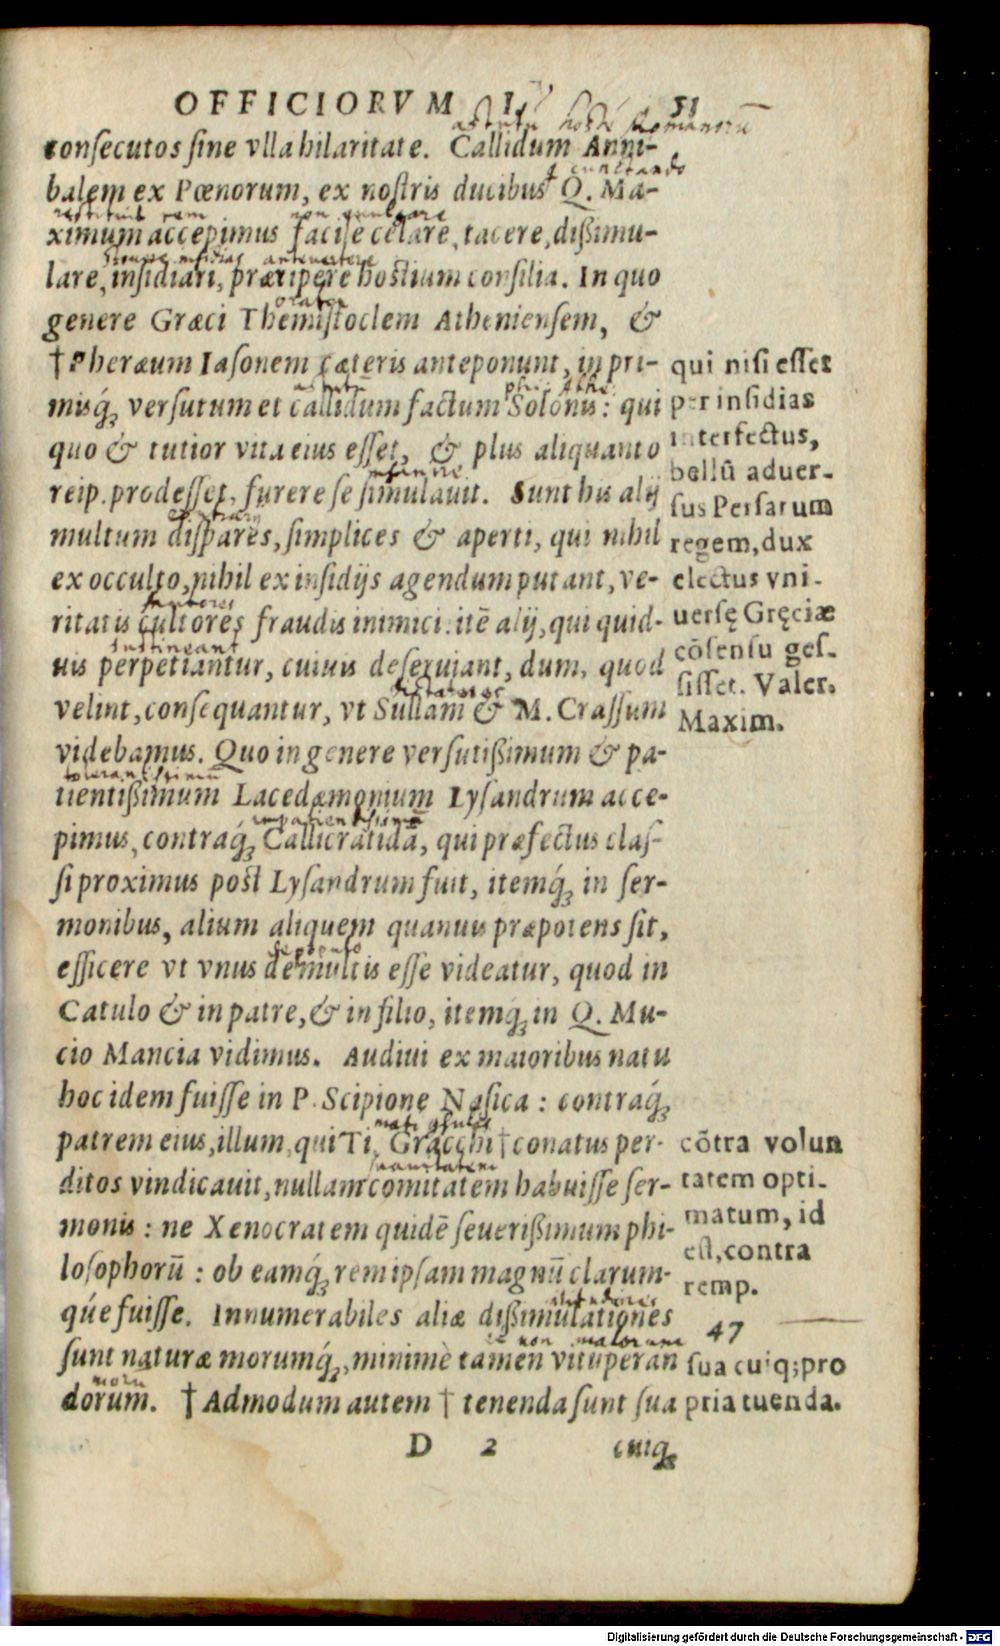 OFFICIORVM I. 51
astutū hostē Romanorū
consecutos sine vlla hilaritate. Callidum Anni-
cunctando
balem ex Pœnorum, ex nostris ducibus Q. Ma-
restituit rem
ximum accepimus facile celare, tacere, dißimu-
antevertere
lare, insidiari, præripere hostium consilia. In quo
genere Græci Themistoclem Atheniensem, &
† Pheræum Iasonem cæteris anteponunt, in pri-
misq́; versutum et callidum factum Solonis: qui
quo & tutior vita eius esset, & plus aliquanto
reip. prodesset, furere se simulauit. Sunt his alij
multum dispares, simplices & aperti, qui nihil
ex occulto, nihil ex insidijs agendum putant, ve-
ritatis cultores fraudis inimici: itē alij, qui quid-
sustineant
uis perpetiantur, cuiuis deseruiant, dum, quod
velint, consequantur, vt Sullam & M. Crassum
videbamus. Quo in genere versutißimum & pa-
tientißimum Lacedæmonium Lysandrum acce-
pimus, contraq́; Callicratidā, qui præfectus clas-
si proximus post Lysandrum fuit, itemq́; in ser-
monibus, alium aliquem quanuis præpotens sit,
de populo
efficere vt vnus de multis esse videatur, quod in
Catulo & in patre, & in filio, itemq́; in Q. Mu-
cio Mancia vidimus. Audiui ex maioribus natu
hoc idem fuisse in P. Scipione Nasica: contraq́;
patrem eius, illum, qui Ti. Gracchi † conatus per-
ditos vindicauit, nullam comitatem habuisse ser-
monis: ne Xenocratem quidē seuerißimum phi-
losophorū: ob eamq́; rem ipsam magnū clarum-
q́ue fuisse. Innumerabiles aliæ dißimulationes
sunt naturæ morumq́;, minimè tamen vituperan
dorum. † Admodum autem † tenenda sunt sua
D 2 cuiq;
qui nisi esset
per insidias
interfectus,
bellū aduer-
sus Persarum
regem, dux
electus vni-
uersę Gręciæ
cōsensu ges-
sisset. Valer.
Maxim.
cōtra volun
tatem opti-
matum, id
est, contra
remp.
47
sua cuiq; pro
pria tuenda.
Digitalisierung gefördert durch die Deutsche Forschungsgemeinschaft - DFG